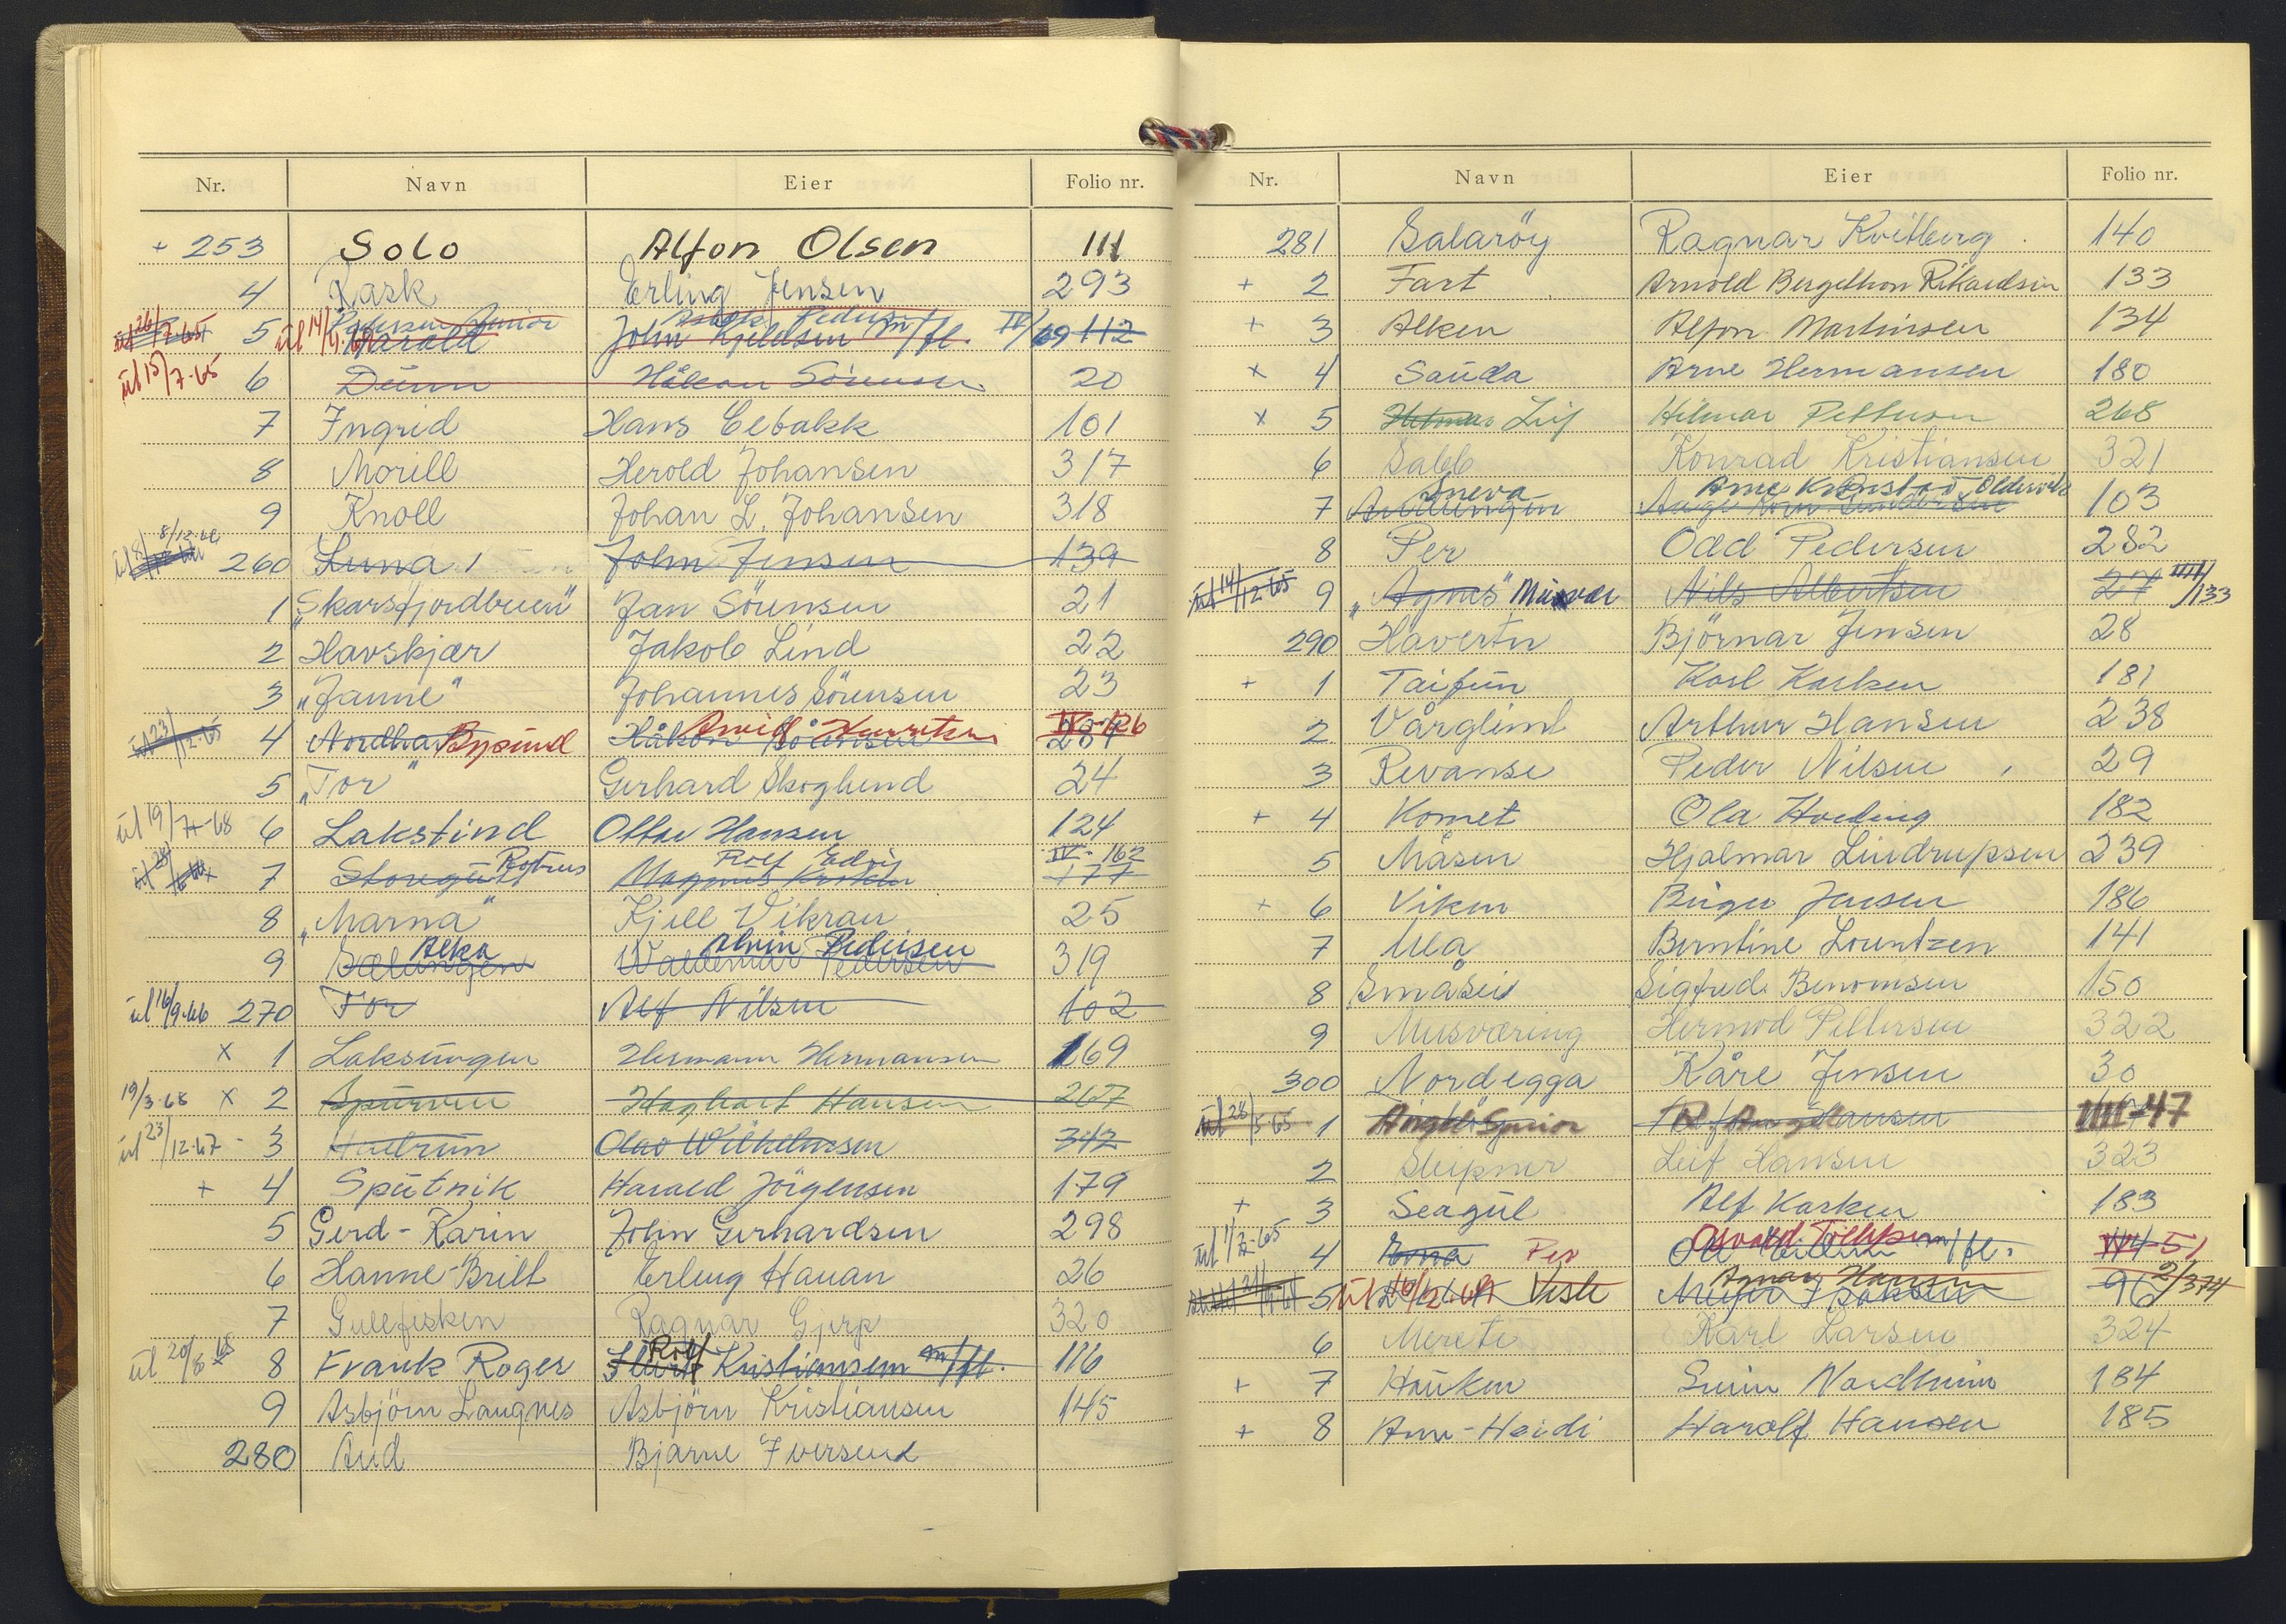 Nr. Navn Eier Folio nr.
+ 253 Solo Alfon Olsen 111
4 Rask Erling Jensen 293
5 Pedersen Junior Harald John Kjeldsen m/fl. IV/69 112
ut 15/7-65 6 Håkon Sörensen 20
7 Ingrid Hans Ebbakk 101
8 Morill Herold Johansen 317
9 Knoll Johan L. Johansen 318
8/12-66 260 Luna 1 John Jensen 139
1 "Skarsfjordbuen" Jan Sörensen 21
2 Havskjær Jakob Lind 22
3 "Janne" Johannes Sörensen 23
ut 23/12-65 4 Bysund Håkon Sörensen IV-126
5 "Tor" Gerhard Skoglund 24
ut 19/7-68 6 Lakstind Ottar Hansen 124
7 Rolf IV-162 177
8 "Marna" Kjell Vikran 25
9 Alka Alvin Pedersen Waldemar Pedersen 319
ut 16/9-66 270 Tor Alf Nilsen 102
x 1 Laksungen Hermann Hermansen 169
19/3-68 x 2 Spurven Hagbart Hansen 267
ut 23/12-67 3 Havbrun Olav Wilhelmsen 342
+ 4 Sputnik Harald Jörgensen 179
5 Gerd-Karin John Gerhardsen 298
6 Hanne-Britt Erling Hauan 26
7 Gullfisken Ragnar Gjerp 320
ut 20/8-68 8 Frank Roger Rolf Kristiansen m/fl. 116
9 Asbjörn Langnes Asbjörn Kristiansen 145
280 Aud Bjarne Iversen
Nr. Navn Eier Folio nr.
281 Salaröy Ragnar Kvitberg 140
+ 2 Fart Arnold Bergethon Rikardsen 133
+ 3 Alken Alfon Martinsen 134
x 4 Sauda Arne Hermansen 180
x 5 Leif Hilmar Pettersen 268
6 Sabb Konrad Kristiansen 321
7 Sneva Arne 103
8 Per Odd Pedersen 282
ut 14/12-65 9 "Agnes" Musvær Nils Albertsen 27 IIII/133
290 Havørn Björnar Jensen 28
+ 1 Taifun Karl Karlsen 181
2 Vårglimt Arthur Hansen 238
3 Revansj Peder Nilsen 29
+ 4 Komet Ola Hveding 182
5 Måsen Hjalmar Lindrupsen 239
+ 6 Viken Birger Jensen 186
7 Ula Berntine Lorentzen 141
8 Småsei Sigfred Benomsen 150
9 Musværing Hermod Pettersen 322
300 Nordegga Kåre Jensen 30
ut 28/5-65 1 Junior Hansen IIII-47
2 Sleipner Leif Hansen 323
+ 3 Seagul Alf Karlsen 183
4 Erna Per Osvald m/fl. 51
5 ut Veslt Agnar Hansen 96 2/374
6 Merete Karl Larsen 324
+ 7 Hauken Nordheim 184
+ 8 Ann-Heidi Harolf Hansen 185